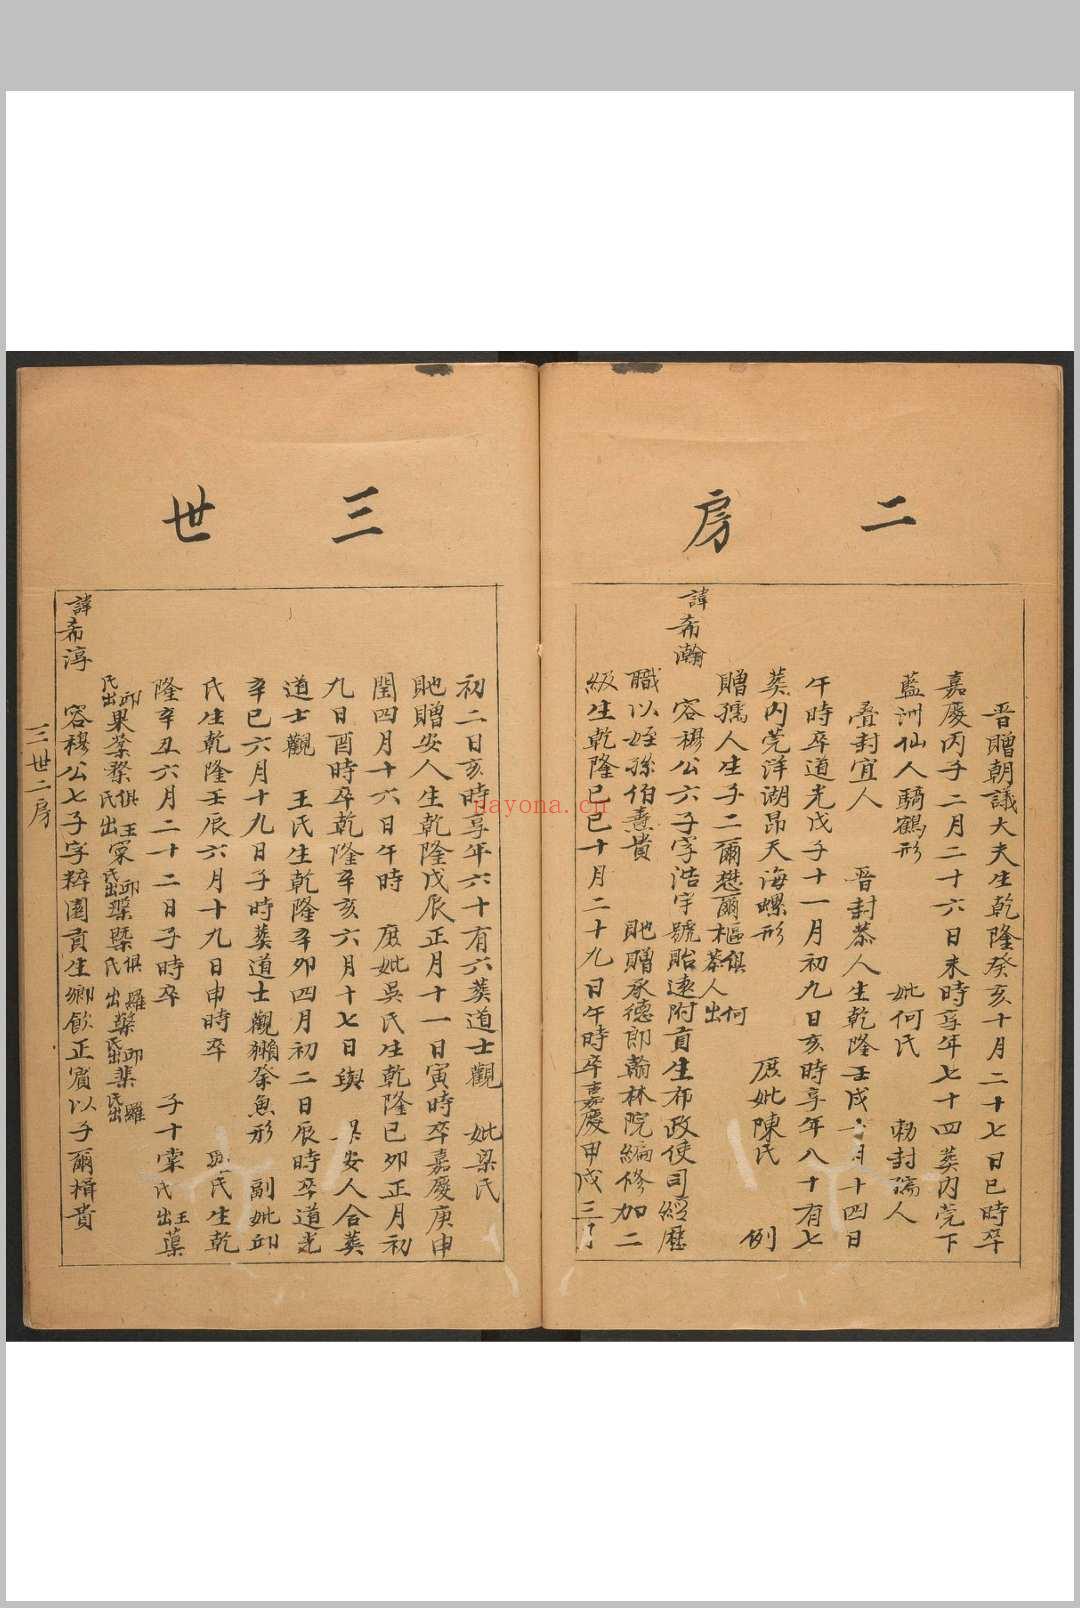 二房
晋贈朝議大夫生乾隆癸亥十月二十七日巳時卒
嘉慶丙子二月二十六日未時享年七十四葬內莞下
藍洲仙人騎鶴形 妣何氏 勅封孺人
叠封宜人 晋封恭人生乾隆壬戌十月十四日
午時卒道光戊子十一月初九日亥時享年八十有七
葬內莞洋湖昂天海螺形 庶妣陳氏 例
贈孺人生子二爾懋爾樞俱何恭人出
諱希瀚
容穆公六子字浩宇號貽遠附貢生布政使司經歷
職以姪孫伯憙貴 貤贈承德郎翰林院編修加二
級生乾隆己巳十月二十九日午時卒嘉慶甲戌三月
三世
初二日亥時享年六十有六葬道士觀 妣梁氏
貤贈安人生乾隆戊辰正月十一日寅時卒嘉慶庚申
閏四月十六日午時 庶妣吳氏生乾隆己卯正月初
九日酉時卒乾隆辛亥六月十七日與 安人合葬
道士觀 王氏生乾隆辛卯四月初二日辰時卒道光
辛巳六月十九日子時葬道士觀獺祭魚形 副妣邱
氏生乾隆壬辰六月十九日申時卒 氏生乾
隆辛丑六月二十二日子時卒 子十棠王氏出
邱氏出 俱王氏出 邱氏出 俱羅氏出 邱氏出 羅氏出
諱希淳
容穆公七子字粹園貢生鄉飲正賓以子爾楫貴
三世二房
nayona.cn